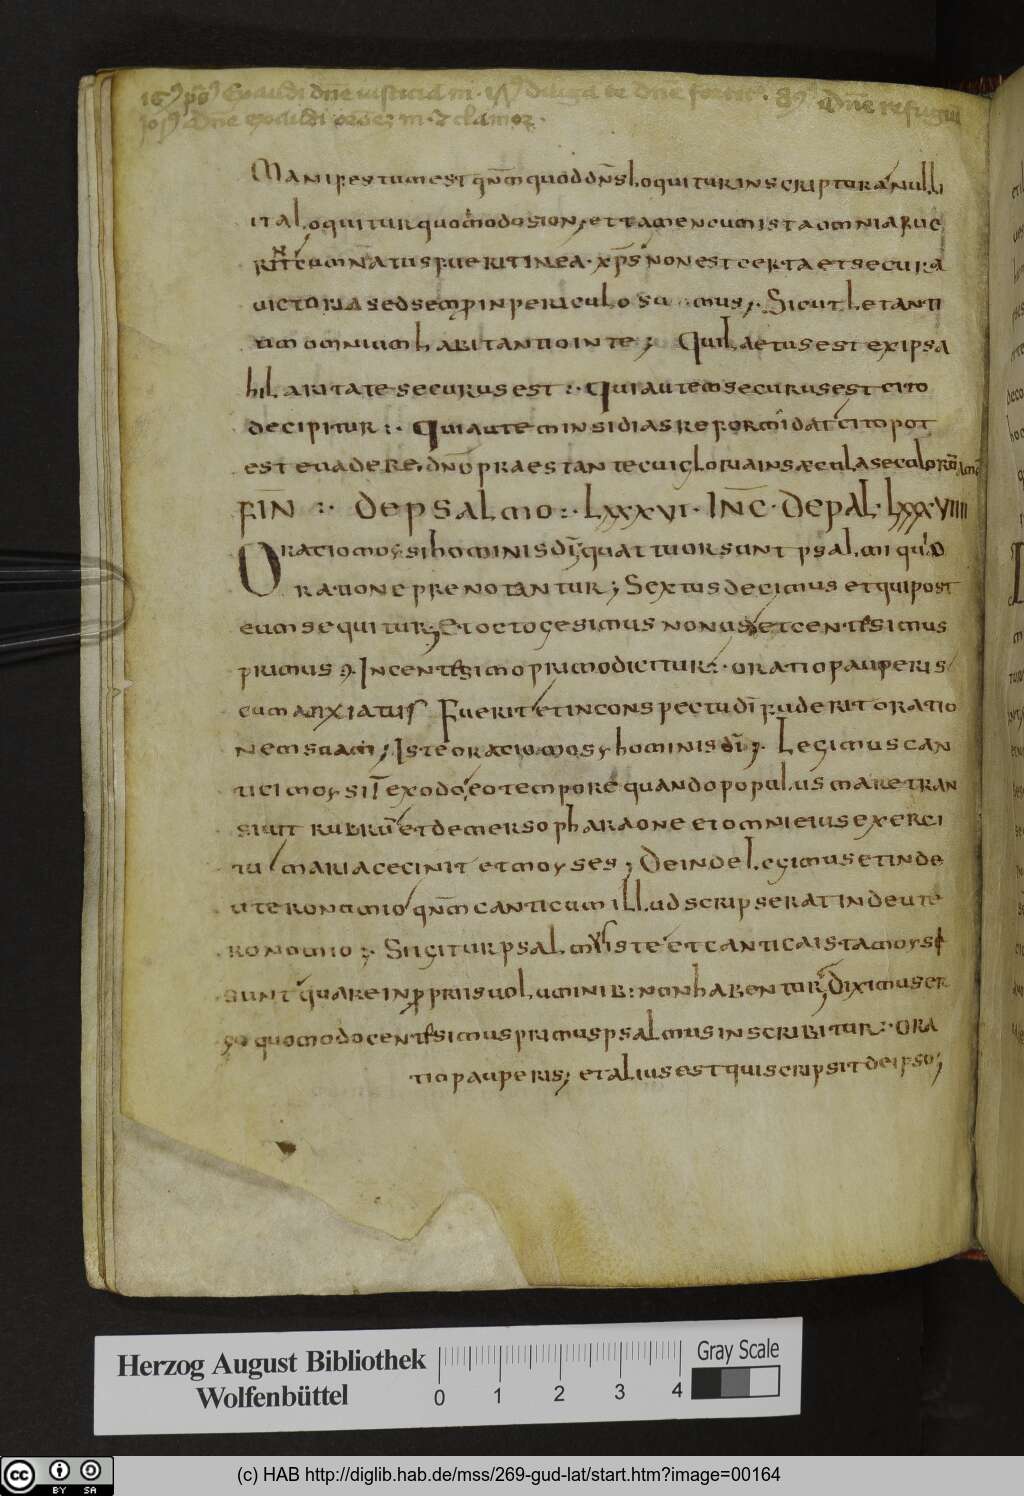 16 ps Exaudi dn̄e iusticiā m. 17 diligā te dn̄e fortit. 89 dn̄e refugiū
dn̄e exaudi orōez m. & clamor.
Manifestum est qnm̄ quod dn̄s loquitur in scriptura nulli
ita loquitur quomodo sion, et tamen cum ista omnia fue
rint cum natus fuerit in ea. xp̄s non est certa et secura
uictoria sed semp in periculo sumus; Sicut letanti
um omnium habitantio in te; Qui laetus est ex ipsa
hilaritate securus est :. qui autem securus est cito
decipitur :. qui autem insidias reformidat cito pot
est euadere, dn̄o praestante cui gloria in saecula seculorū amē
FIN̄ :. DE PSALMO :. LXXXVI. INC̄. DE PSAL. LXXXVIIII
Oratio moysi hominis dī; quattuor sunt psalmi qui
oratione prenotantur; Sextus decimus et qui post
eum sequitur; Et octogesimus nonus, et centesimus
primus; In centesimo primo dicitur :. oratio pauperis
cum anxiatus fuerit et in conspectu dī fuderit oratio
nem suam; Iste oratio mosy hominis dī; Legimus can
tici moysi ī exodo, eo tempore quando populus mare tran
siuit rubrū et demerso pharaone et omni eius exerci
tu maria cecinit et moyses; Deinde legimus et in de
uteronomio qnm̄ canticum illud scripserat in deute
ronomio; Si igitur psalmus iste et cantica ista moysi
sunt quare in propriis uoluminib: non habentur, Diximus er
go quomodo centesimus primus psalmus inscribitur :. ora
tio pauperis; et alius est qui scripsit de ipso;
Herzog August Bibliothek
Wolfenbüttel
0 1 2 3 4
Gray Scale
cc BY SA
(c) HAB http://diglib.hab.de/mss/269-gud-lat/start.htm?image=00164